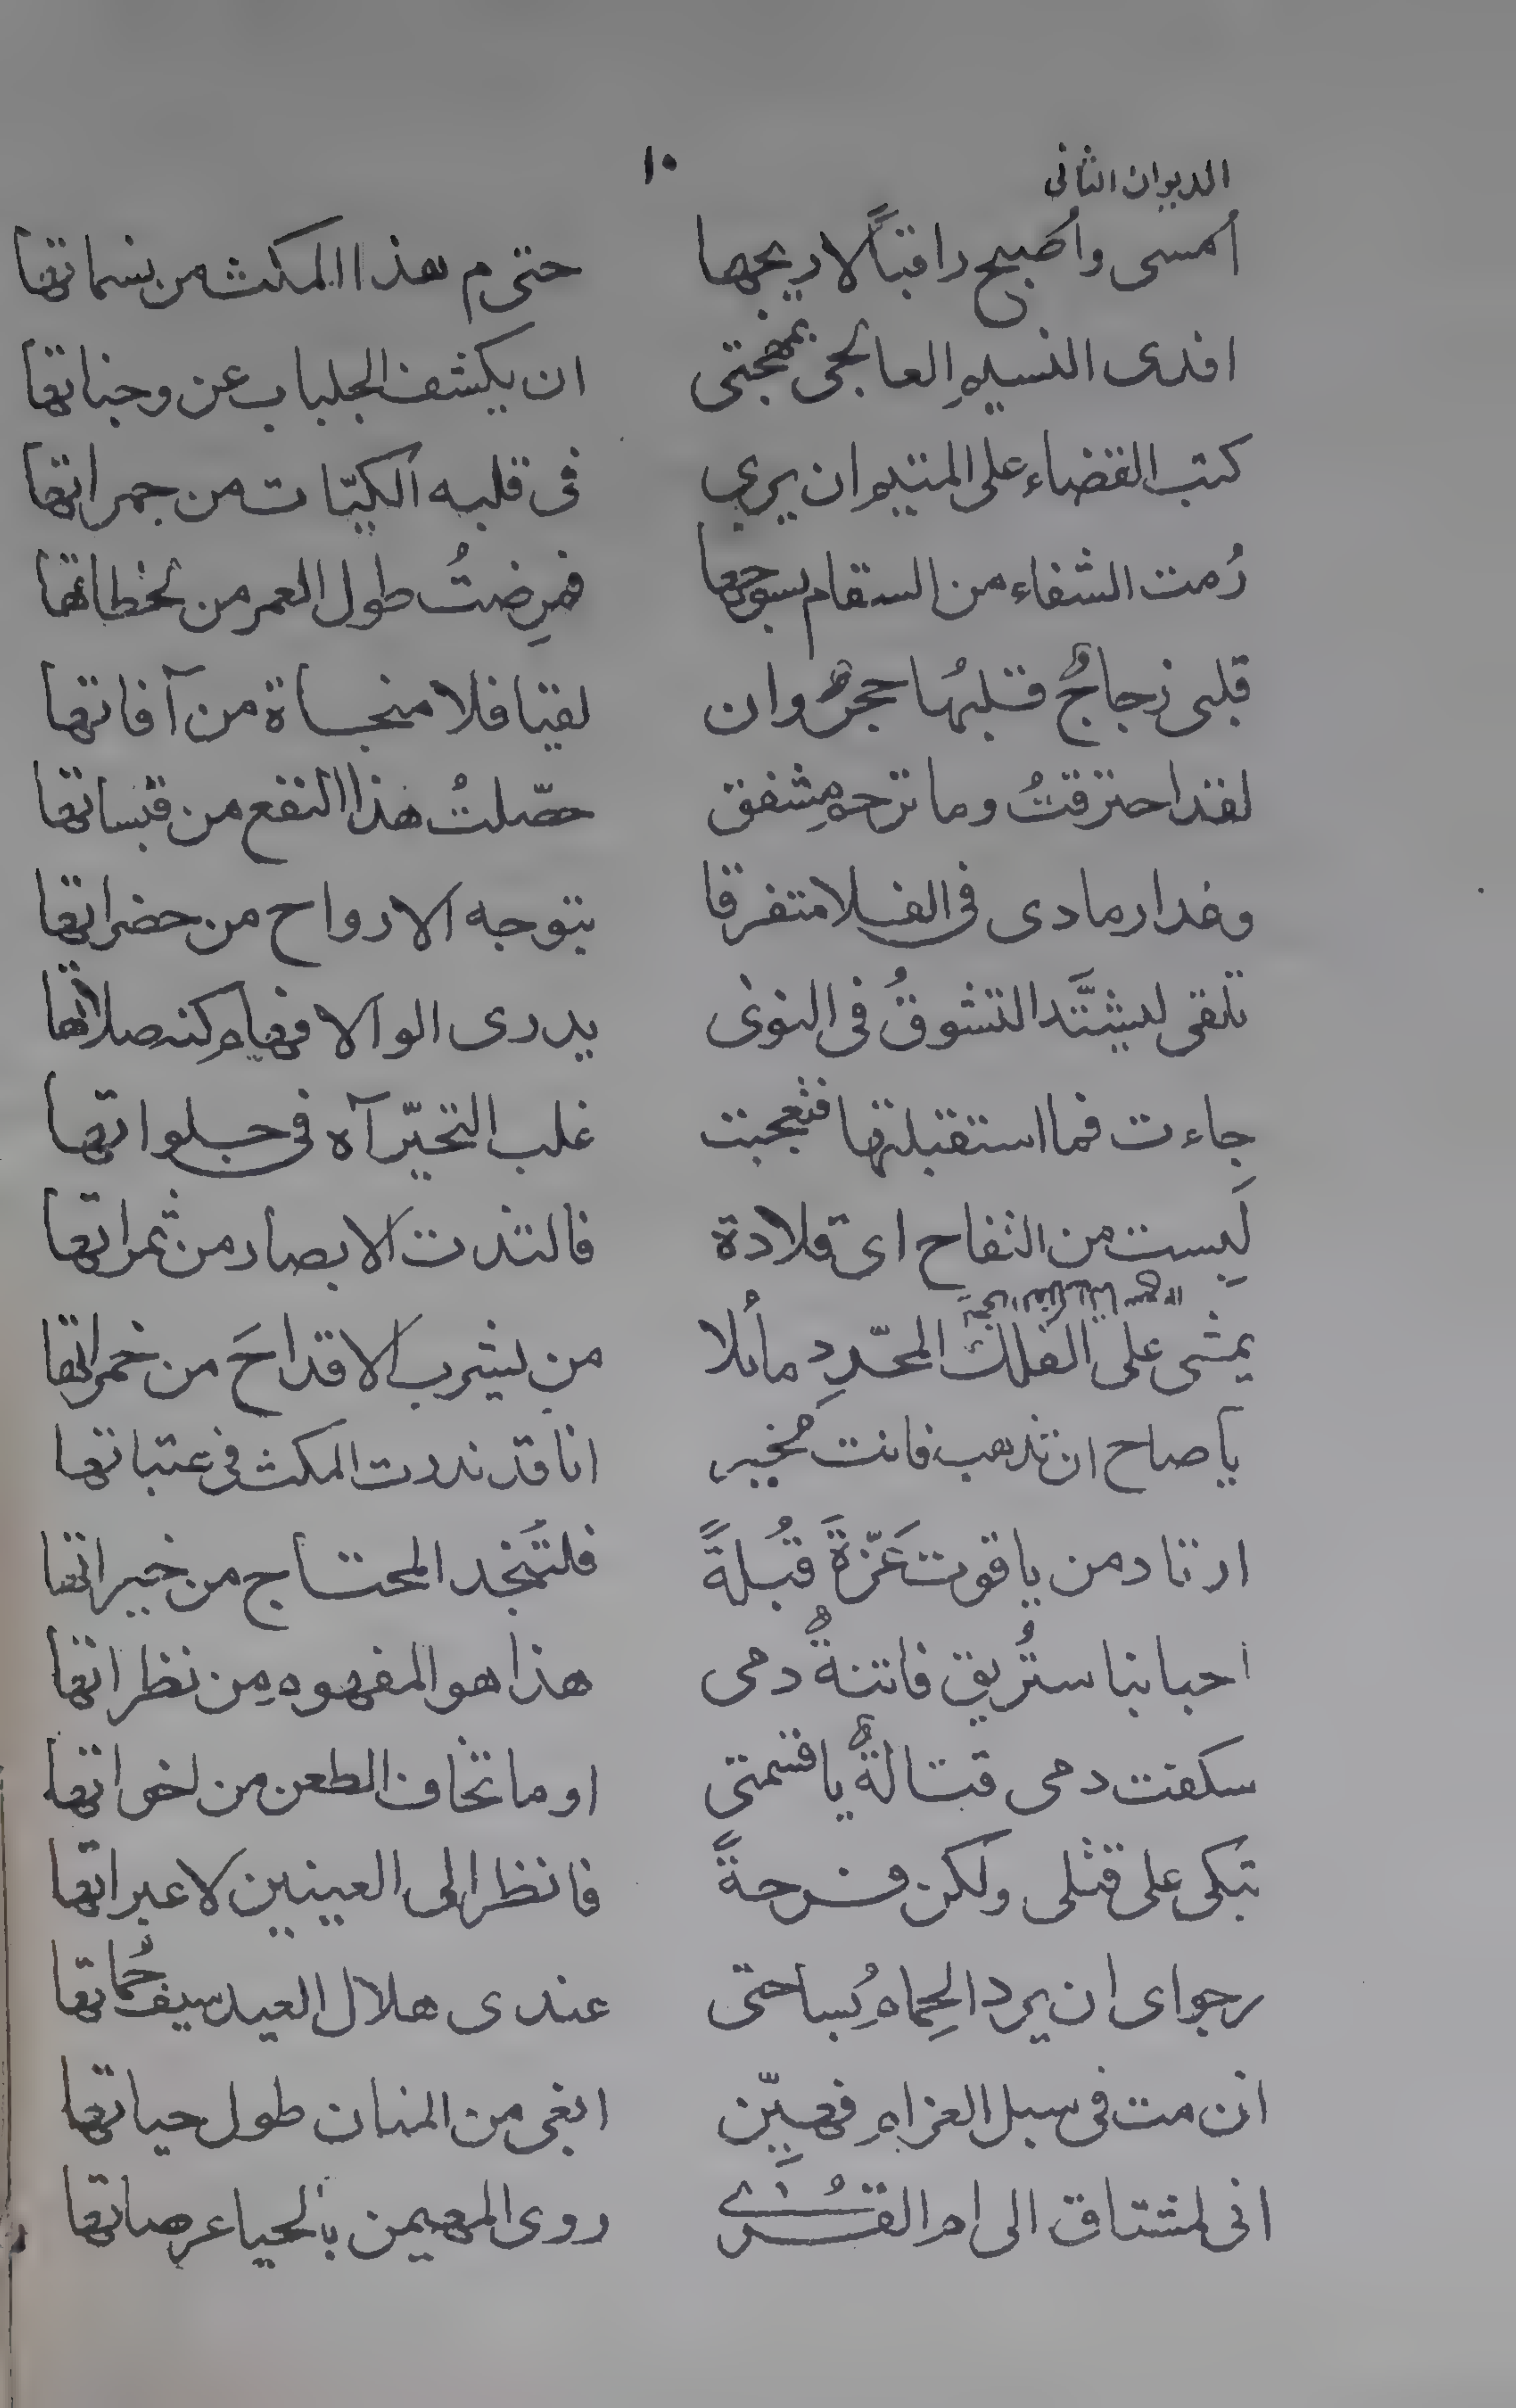 الديوان الثانى
١٠
اُمسى واُصبح راقباً لاريجها حتى م هذا المكث من نسماتها
افدى النسيم العالجى بمهجتى ان يكشف الجلباب عن وجناتها
كتب القضاء على المتيم ان يرى فى قلبه الكيّات من جمراتها
رُمت الشفاء من السقام بسوحها فمرِضتُ طول العمر من لحظاتها
قلبى زجاجٌ قلبُها حجرٌ وان لقيا فلا منجاة من آفاتها
لقد احترقتُ وما ترحم مشفق حصّلتُ هذا النفع من قبساتها
وغدا رمادى فى الفلا متفرقا بتوجه الارواح من حضراتها
تلقى ليشتَّد التشوقُ فى النوى يدرى الو الافهام كنه صلاتها
جاءت فما استقبلتها فتعجبت غلب التحيّر آه فى جلواتها
لَبِست من التفاح اى قلادة فالتذت الابصار من ثمراتها
يمشى على الفلك المحّددِ مائلا من يشرب الاقداحَ من خمراتها
يا صاح ان تذهب فانت مُخير انا قد نذرت المكث فى عتباتها
ارتاد من ياقوت عَزّةَ قُبلةً فلتُنجد المحتاج من خيراتها
احبابنا ستُريق فاتنةٌ دمى هذا هو المفهوم من نظراتها
سكفت دمى قتالةٌ يا قسمتى او ما تخاف الطعن من اخواتها
تبكى على قتلى ولكن فرحةً فانظر الى العينين لا عبراتها
رجواى ان يرد الحِمام بُساحتى عندى هلال العيد سيف حُماتها
ان مت فى سبل الغرام فهيّن ابغى من المنان طول حياتها
انى لمشتاق الى ام القُرى روى المهيمن بالحيا عرصاتها